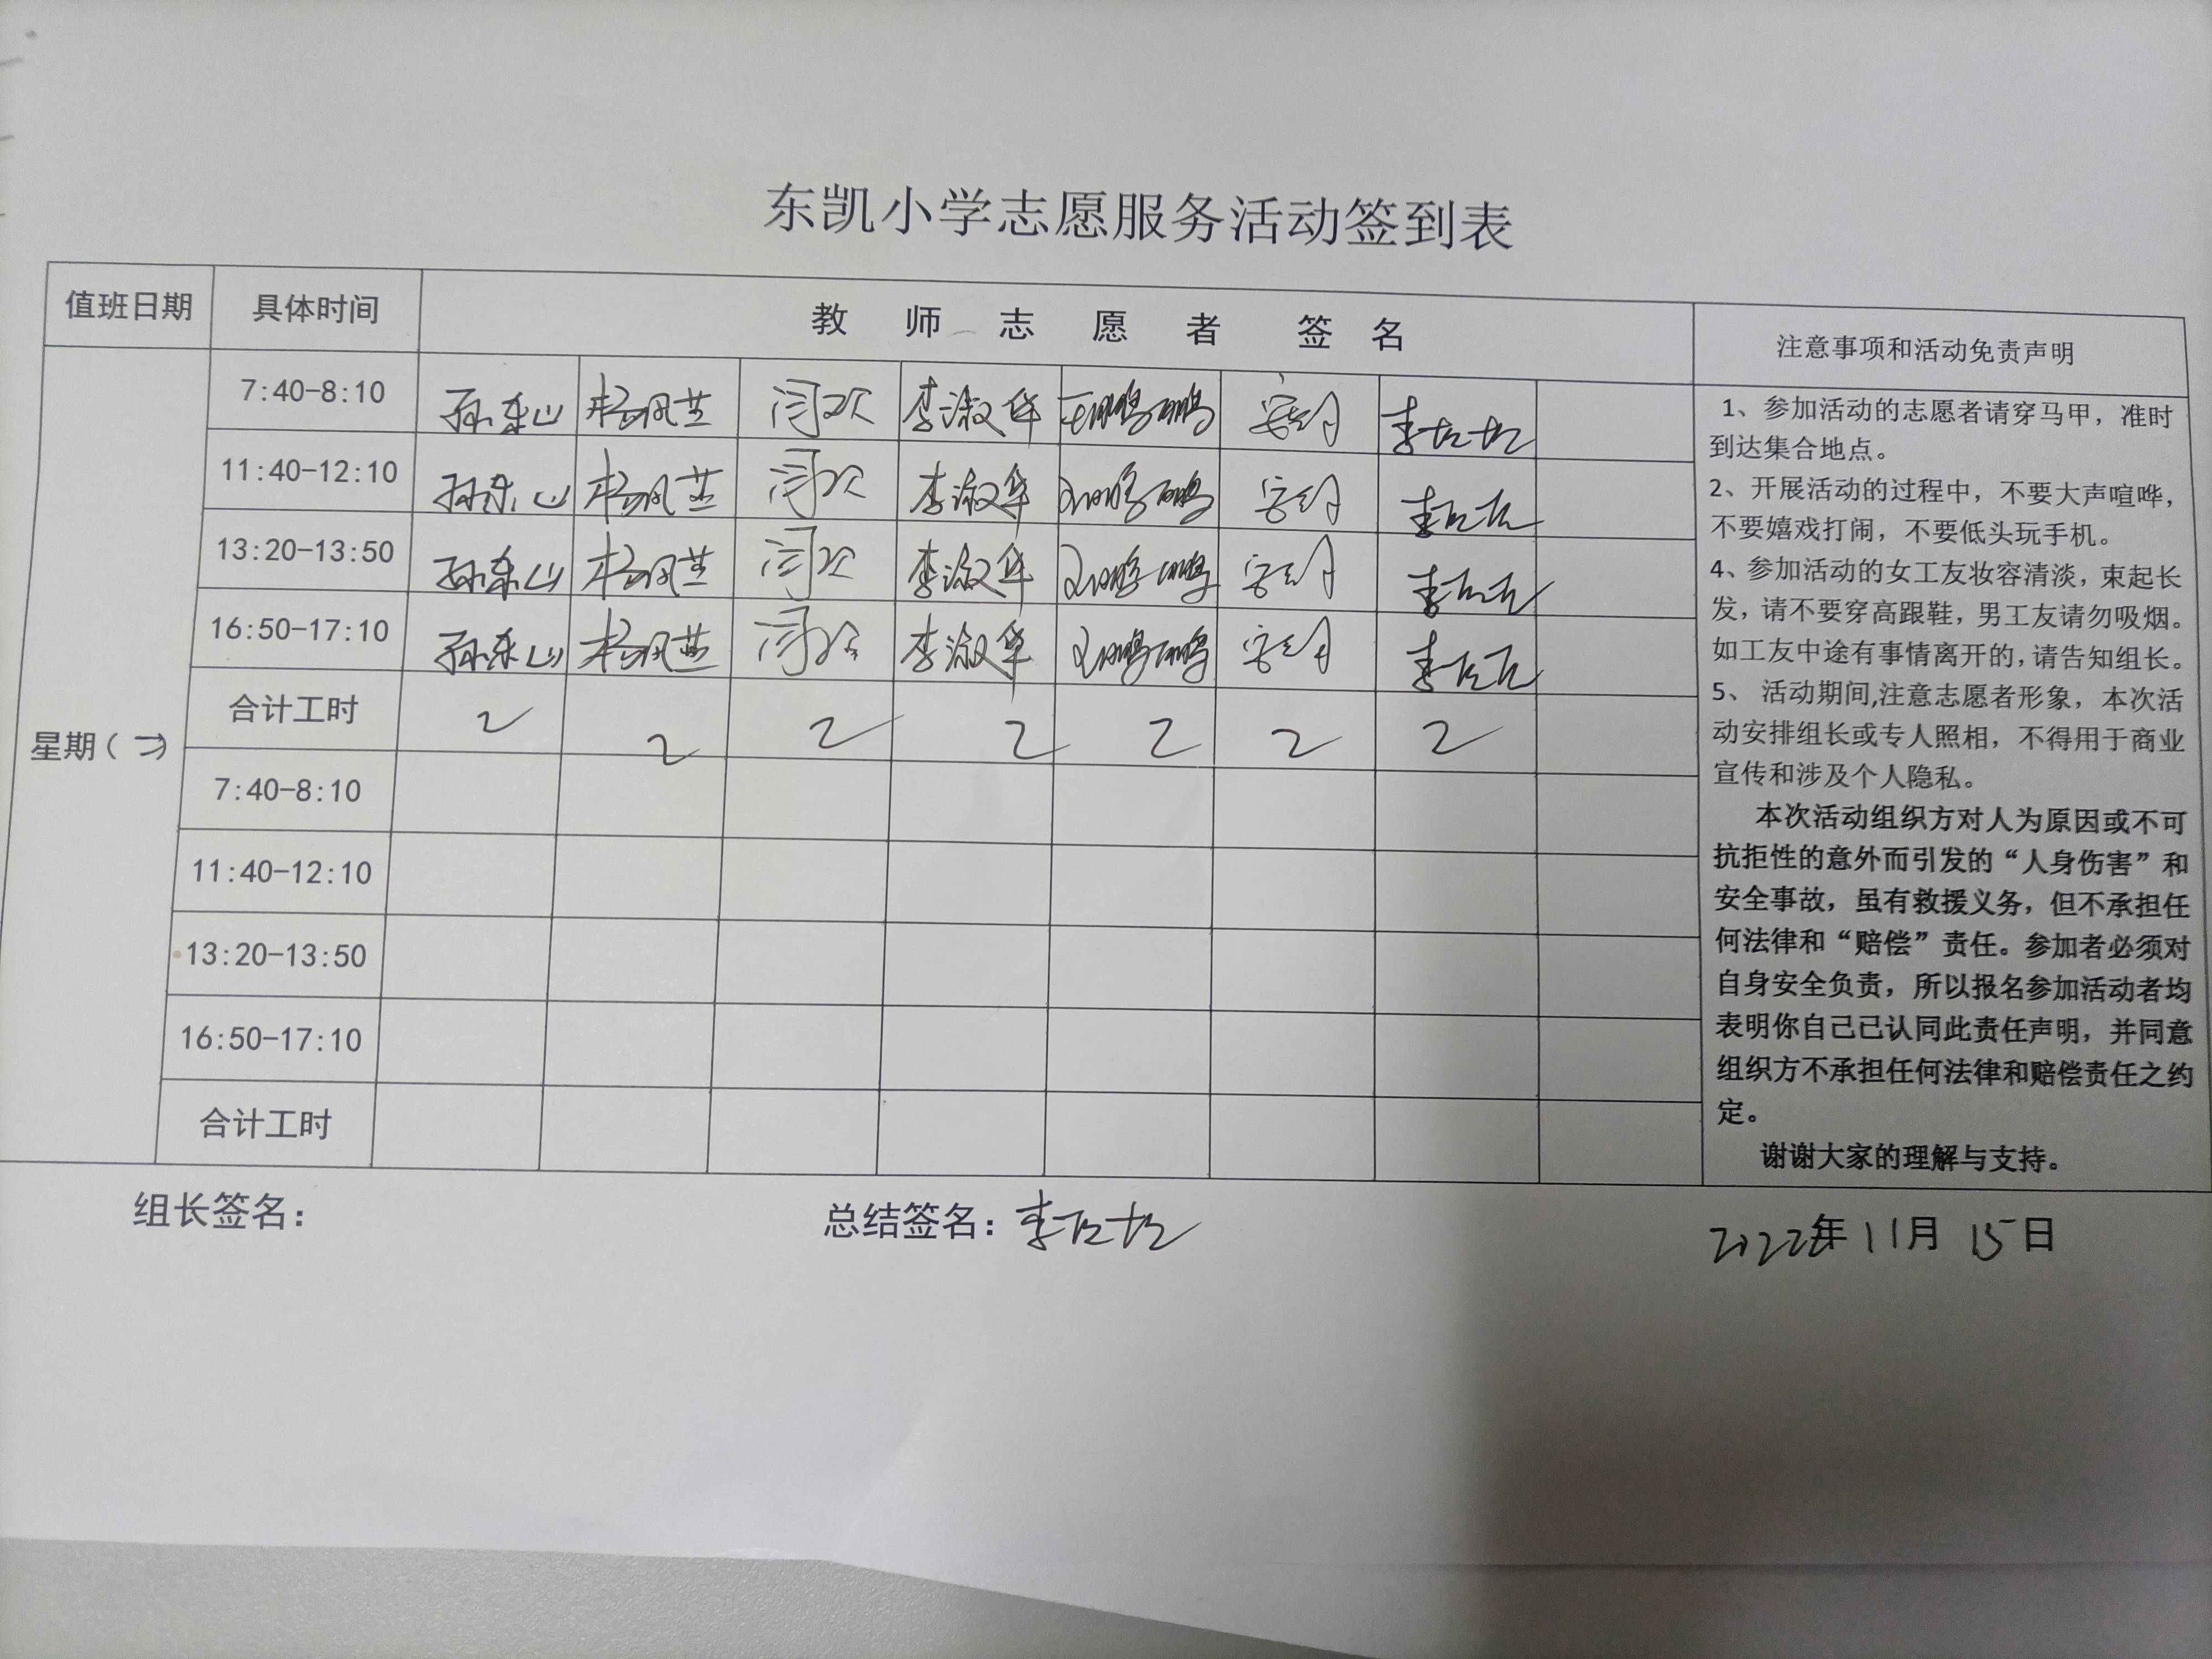 东凯小学志愿服务活动签到表
值班日期 具体时间 教 师 志 愿 者 签 名 注意事项和活动免责声明
7:40-8:10 孙东山 杨凤芝 闫欢 李淑华
11:40-12:10 孙东山 杨凤芝 闫欢 李淑华
13:20-13:50 孙东山 杨凤芝 闫欢 李淑华
16:50-17:10 孙东山 杨凤芝 闫欢 李淑华
合计工时 2 2 2 2 2 2 2
星期(二)
7:40-8:10
11:40-12:10
13:20-13:50
16:50-17:10
合计工时
1、参加活动的志愿者请穿马甲，准时
到达集合地点。
2、开展活动的过程中，不要大声喧哗，
不要嬉戏打闹，不要低头玩手机。
4、参加活动的女工友妆容清淡，束起长
发，请不要穿高跟鞋，男工友请勿吸烟。
如工友中途有事情离开的，请告知组长。
5、 活动期间,注意志愿者形象，本次活
动安排组长或专人照相，不得用于商业
宣传和涉及个人隐私。
本次活动组织方对人为原因或不可
抗拒性的意外而引发的“人身伤害”和
安全事故，虽有救援义务，但不承担任
何法律和“赔偿”责任。参加者必须对
自身安全负责，所以报名参加活动者均
表明你自己已认同此责任声明，并同意
组织方不承担任何法律和赔偿责任之约
定。
谢谢大家的理解与支持。
组长签名： 总结签名： 2022年11月15日